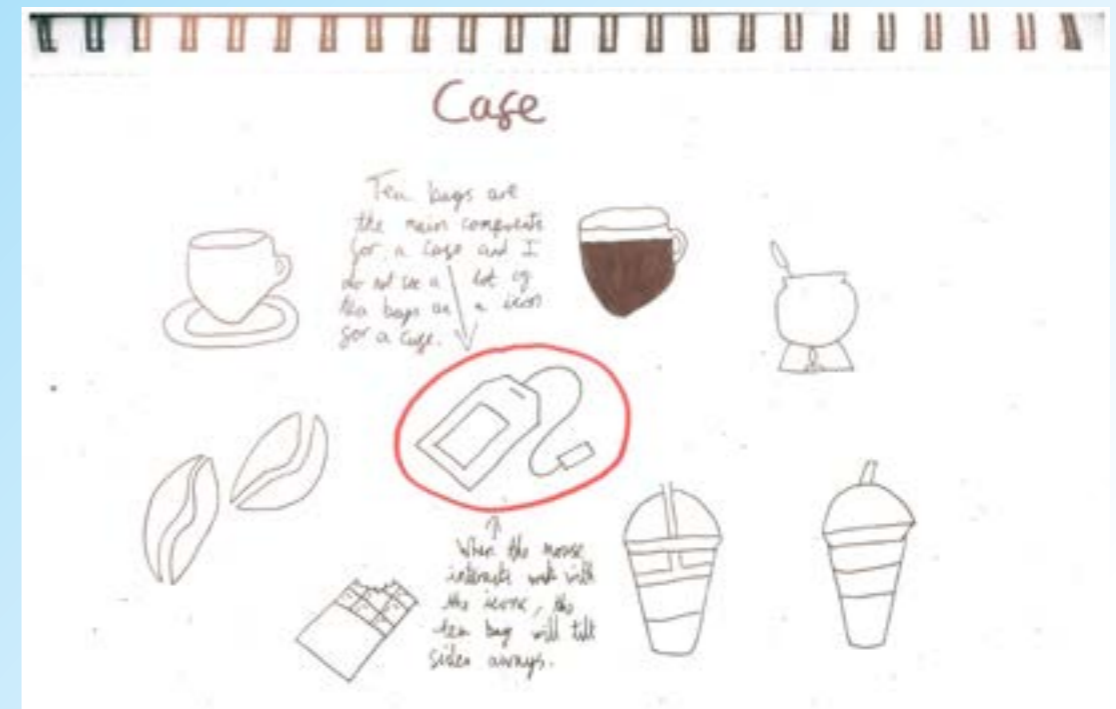 Cafe
Tea bags are
the main components
for a cafe and I
do not see a lot of
tea bags as a icon
for a cafe.
When the mouse
interacts with
the icon, the
tea bag will tilt
sides aways.